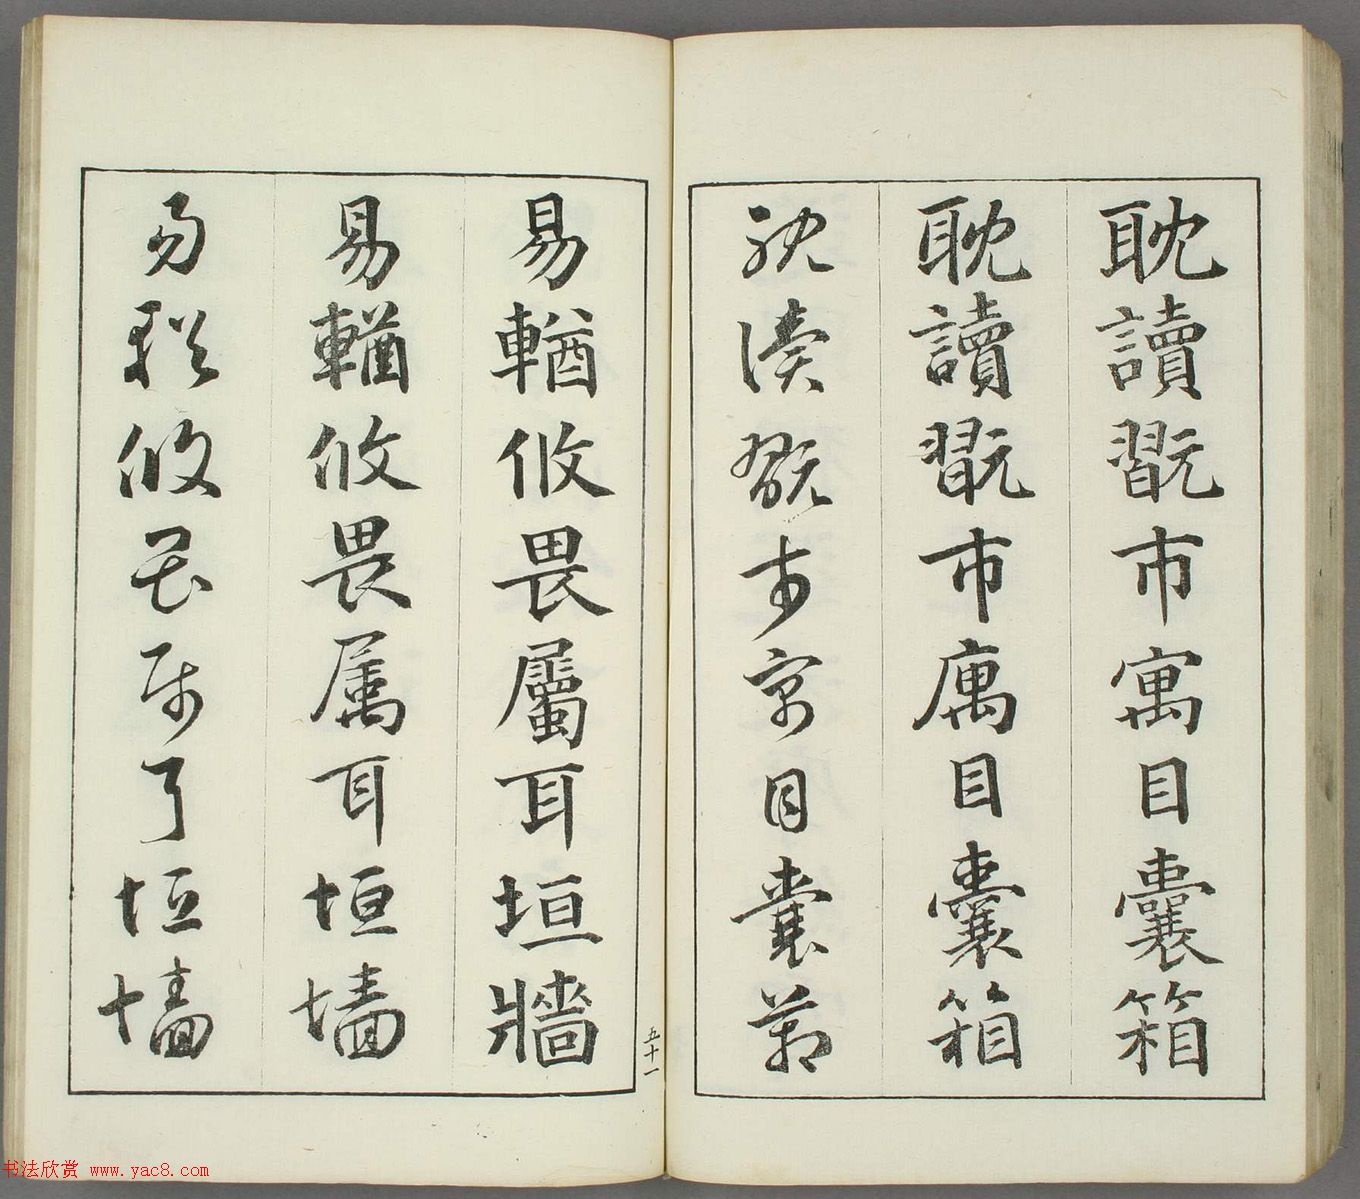 耽讀翫市寓目囊箱
耽讀翫市寓目囊箱
耽讀翫市寓目囊箱
易輶攸畏屬耳垣牆
易輶攸畏属耳垣墙
易輶攸畏属耳垣墙
五十一
书法欣赏 www.yac8.com